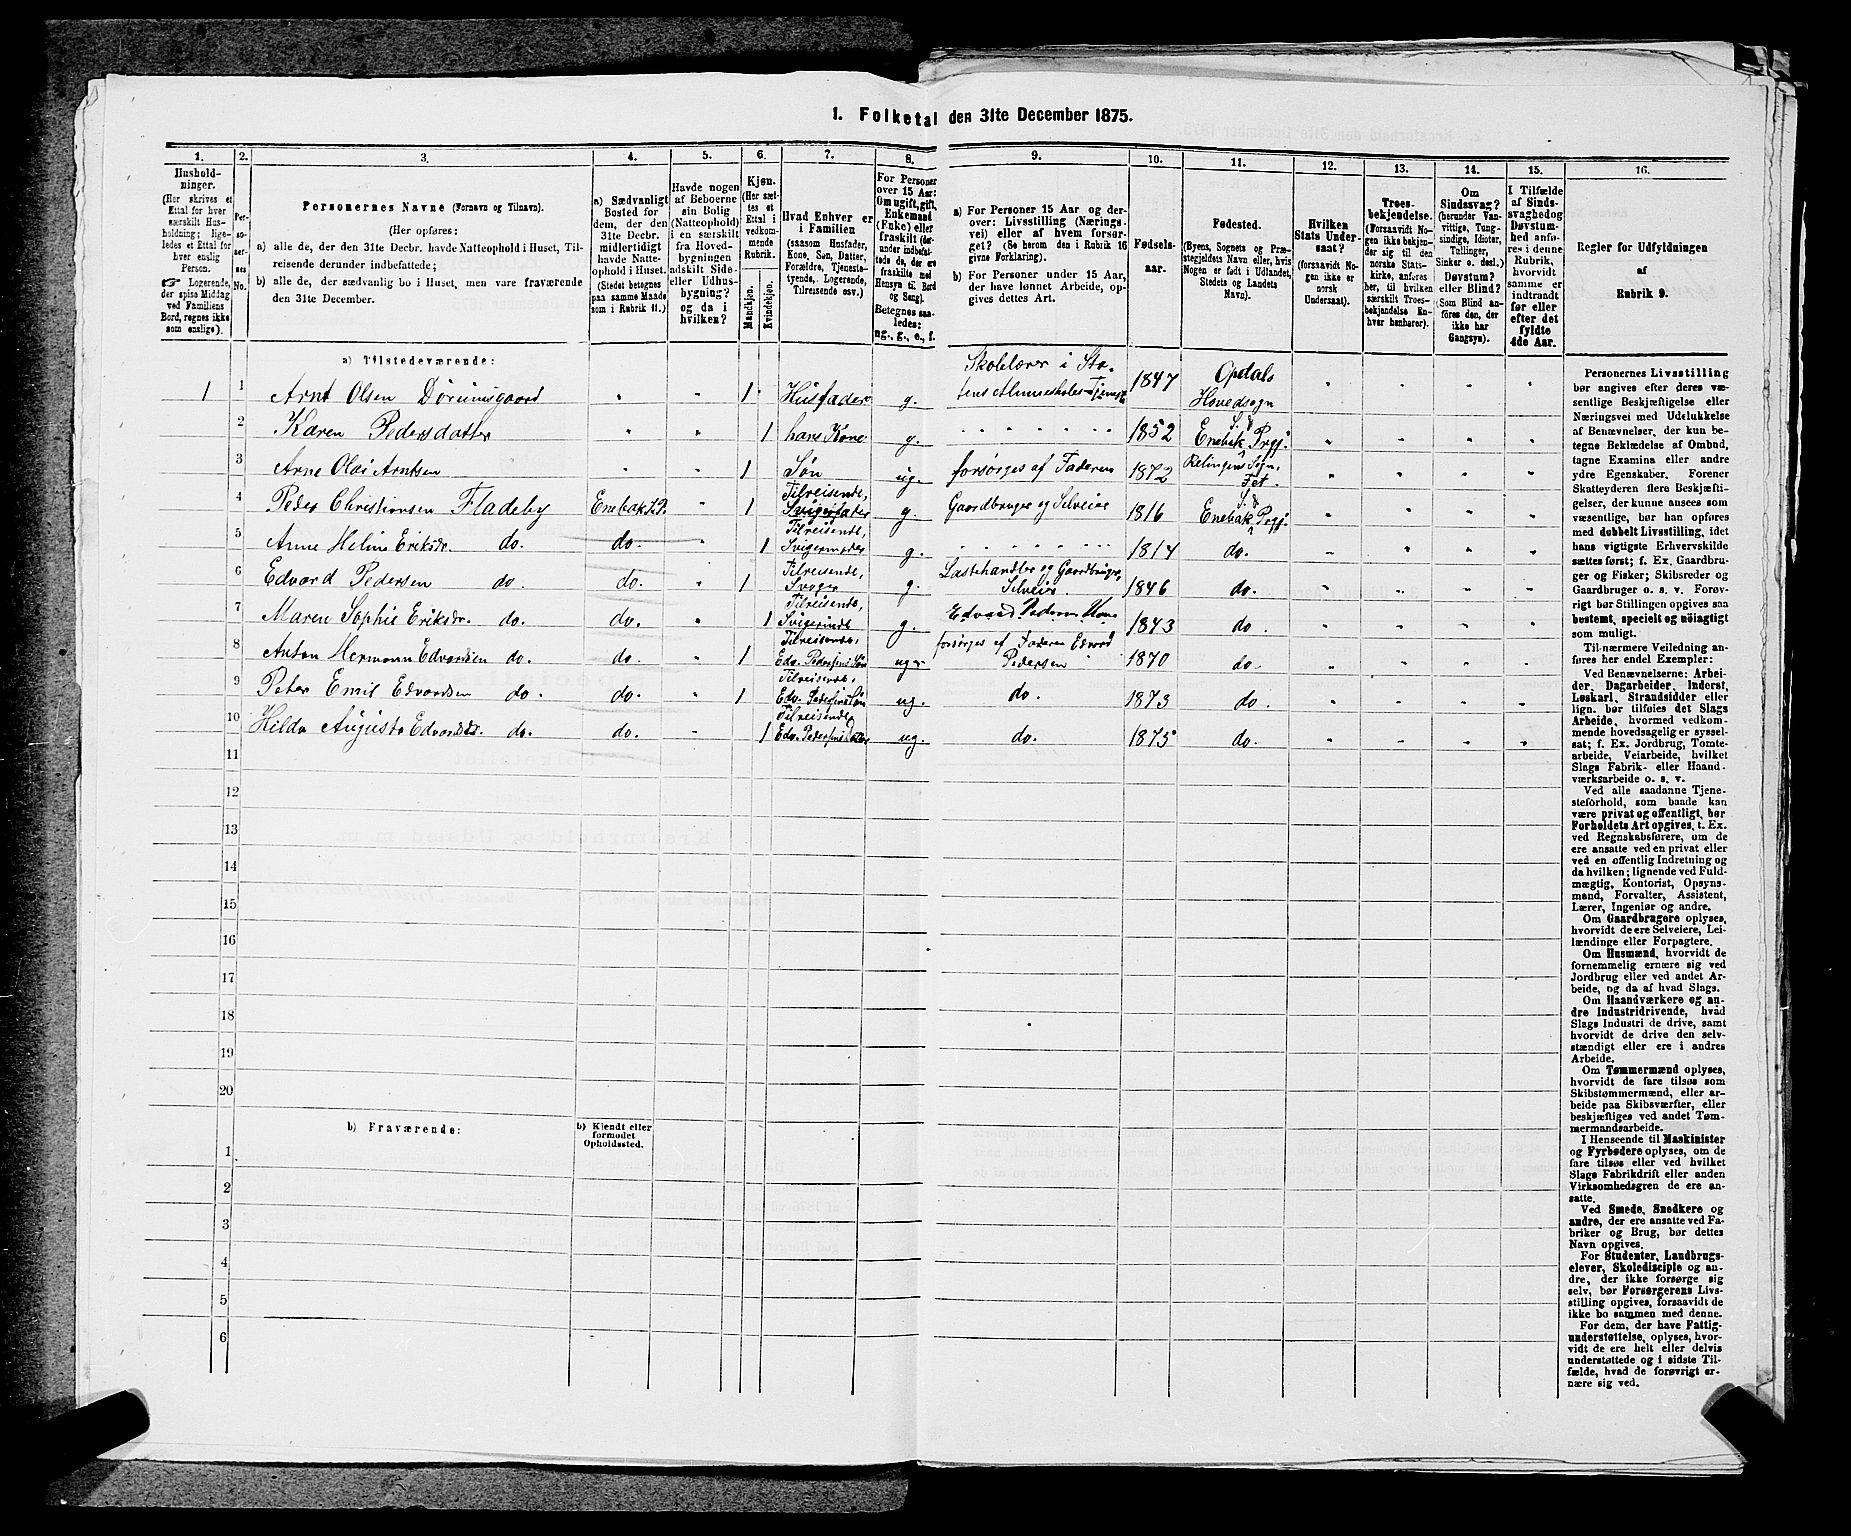 1. Folketal den 31te December 1875.
1. 2. 3. 4. 5. 6. 7. 8. 9. 10. 11. 12. 13. 14. 15. 16.
Hushold-
ninger.
(Her skrives et
Ettal for hver
særskilt Hus-
holdning; lige-
ledes et Ettal for
hver enslig
Person.
☞ Logerende,
der spise Middag
ved Familiens
Bord, regnes ikke
som enslige).
Per-
so-
ner-
nes
No.
Personernes Navne (Fornavn og Tilnavn).
(Her opføres:
a) alle de, der den 31te Decbr. havde Natteophold i Huset, Til-
reisende derunder indbefattede;
b) alle de, der sædvanlig bo i Huset, men vare fraværende
den 31te December.
a) Sædvanligt
Bosted for
dem, der den
31te Decbr.
midlertidigt
havde Natte-
ophold i Huset.
(Stedet betegnes
paa samme Maade
som i Rubrik 11.)
Havde nogen
af Beboerne
sin Bolig
(Natteophold)
i en særskilt
fra Hoved-
bygningen
adskilt Side-
eller Udhus-
bygning?
og da i
hvilken?
Kjøn.
(Her sæt-
tes et
Ettal i
vedkom-
mende
Rubrik.
Mandkjøn.
Kvindekjøn.
Hvad Enhver er
i Familien
(saasom Husfader,
Kone, Søn, Datter,
Forældre, Tjeneste-
tyende, Logerende,
Tilreisende osv.)
For Personer
over 15 Aar:
Om ugift, gift,
Enkemand
(Enke) eller
fraskilt (der-
under indbefat-
tede de, der ere
fraskilte med
Hensyn til Bord
og Seng).
Betegnes saa-
ledes:
ug., g., e., f.
a) For Personer 15 Aar og der-
over: Livsstilling (Nærings-
vei) eller af hvem forsør-
get? (Se herom den i Rubrik 16
givne Forklaring).
b) For Personer under 15 Aar,
der have lønnet Arbeide, op-
gives dettes Art.
Fødsels-
aar.
Fødested.
(Byens, Sognets og Præ-
stegjeldets Navn eller, hvis
Nogen er født i Udlandet,
Stedets og Landets
Navn).
Hvilken
Stats Under-
saat?
(forsaavidt No-
gen ikke er
norsk
Undersaat).
Troes-
bekjendelse.
(Forsaavidt No-
gen ikke bekjen-
der sig til den
norske Stats-
kirke, anføres
her, til hvilken
særskilt Troes-
bekjendelse En-
hver henhører).
Om
Sindssvag?
(herunder Van-
vittige, Tung-
sindige, Idioter,
Tullinger,
Sinker o. desl.)
Døvstum?
eller Blind?
Som Blind an-
føres den, der
ikke har
Gangsyn).
I Tilfælde
af Sinds-
svaghed og
Døvstum-
hed anfø-
res i denne
Rubrik,
hvorvidt
samme er
indtraadt
før eller
efter det
fyldte
4de Aar.
Regler for Udfyldningen
af
Rubrik 9.
a) Tilstedeværende:
1 1 Arnt Olsen Dørumsgaard " " 1 Husfader g. Skolelærer i Sta-
tens Almueskoles Tjeneste 1847 Opdals
Hovedsogn " " " "
2 Karen Pedersdatter " " 1 hans Kone g. " " " " " " 1852 S. &
Enebak Prgj. " " " "
3 Arne Olai Arntsen " " 1 Søn ug. forsørges af Faderen 1872 Relingens Sogn,
Fet. " " " "
4 Peder Christiansen Fladeby Enebak S.P. " 1 Tilreisende,
Svigerfader g. Gaardbruger og Selveier 1816 S. &
Enebak Prgj. " " " "
5 Anne Heline Eriksdr. do. do. " 1 Tilreisende,
Svigermoder g. " " " " " " 1814 do. " " " "
6 Edvard Pedersen do. do. " 1 Tilreisende,
Svoger g. Lastehandler og Gaardbruger,
Selveier. 1846 do. " " " "
7 Maren Sophie Eriksdr. do. do. " 1 Tilreisende,
Svigerinde g. Edvard Pedersens Kone 1843 do. " " " "
8 Anton Hermann Edvardsen do. do. " 1 Tilreisende,
Edv. Pedersens Søn ug. forsørges af Faderen Edvard
Pedersen 1870 do. " " " "
9 Peter Emil Edvardsen do. do. " 1 Tilreisende,
Edv. Pedersens Søn ug. do. 1873 do. " " " "
10 Hilda Augusta Edvardsdr. do. do. " 1 Tilreisende
Edv. Pedersens Datter ug. do. 1875 do. " " " "
11
12
13
14
15
16
17
18
19
20
b) Fraværende:
b) Kjendt eller
formodet
Opholdssted.
1
2
3
4
5
6
Personernes Livsstilling
bør angives efter deres væ-
sentlige Beskjæftigelse eller
Næringsvei med Udelukkelse
af Benævnelser, der kun be-
tegne Beklædelse af Ombud,
tagne Examina eller andre
ydre Egenskaber. Forener
Skatteyderen flere Beskjæfti-
gelser, der kunne ansees som
væsentlige, bør han opføres
med dobbelt Livsstilling, idet
hans vigtigste Erhvervskilde
sættes først; f. Ex. Gaardbru-
ger og Fisker; Skibsreder og
Gaardbruger o. s. v. Forøv-
rigt bør Stillingen opgives saa
bestemt, specielt og nöiagtigt
som muligt.
Til nærmere Veiledning an-
føres her endel Exempler:
Ved Benævnelserne: Arbei-
der, Dagarbeider, Inderst,
Løskarl, Strandsidder eller
lign. bør tilføies det Slags
Arbeide, hvormed vedkom-
mende hovedsagelig er syssel-
sat; f. Ex. Jordbrug, Tomte-
arbeide, Veiarbeide, hvilket
Slags Fabrik- eller Haand-
værksarbeide o. s. v.
Ved alle saadanne Tjene-
steforhold, som baade kan
være privat og offentligt, bør
Forholdets Art opgives, t. Ex.
ved Regnskabsførere, om de
ere ansatte ved en privat eller
ved en offentlig Indretning og
da hvilken; lignende ved Fuld-
mægtig, Kontorist, Opsyns-
mand, Forvalter, Assistent,
Lærer, Ingeniør og andre.
Om Gaardbrugere oplyses,
hvorvidt de ere Selveiere, Lei-
lændinge eller Forpagtere.
Om Husmænd, hvorvidt de
fornemmelig ernære sig ved
Jordbrug eller ved andet Ar-
beide, og da af hvad Slags.
Om Haandværkere og an-
dre Industridrivende, hvad
Slags Industri de drive, samt
hvorvidt de drive den selv-
stændigt eller ere i andres
Arbeide.
Om Tømmermænd oplyses,
hvorvidt de fare tilsøs som
Skibstømmermænd, eller ar-
beide paa Skibsværfter, eller
beskjæftiges ved andet Tøm-
mermandsarbeide.
I Henseende til Maskinister
og Fyrbødere oplyses, om de
fare tilsøs eller ved hvilket
Slags Fabrikdrift eller anden
Virksomhedsgren de ere an-
satte.
Ved Smede, Snedkere og
andre, der ere ansatte ved Fa-
briker og Brug, bør dettes
Navn opgives.
For Studenter, Landbrugs-
elever, Skoledisciple og an-
dre, der ikke forsørge sig
selv, bør Forsørgerens Livs-
stilling opgives, forsaavidt de
ikke bo sammen med denne.
For dem, der have Fattig-
understøttelse, oplyses, hvor-
vidt de ere helt eller delvis
understøttede og i sidste Til-
fælde, hvad de forøvrigt er-
nære sig ved.